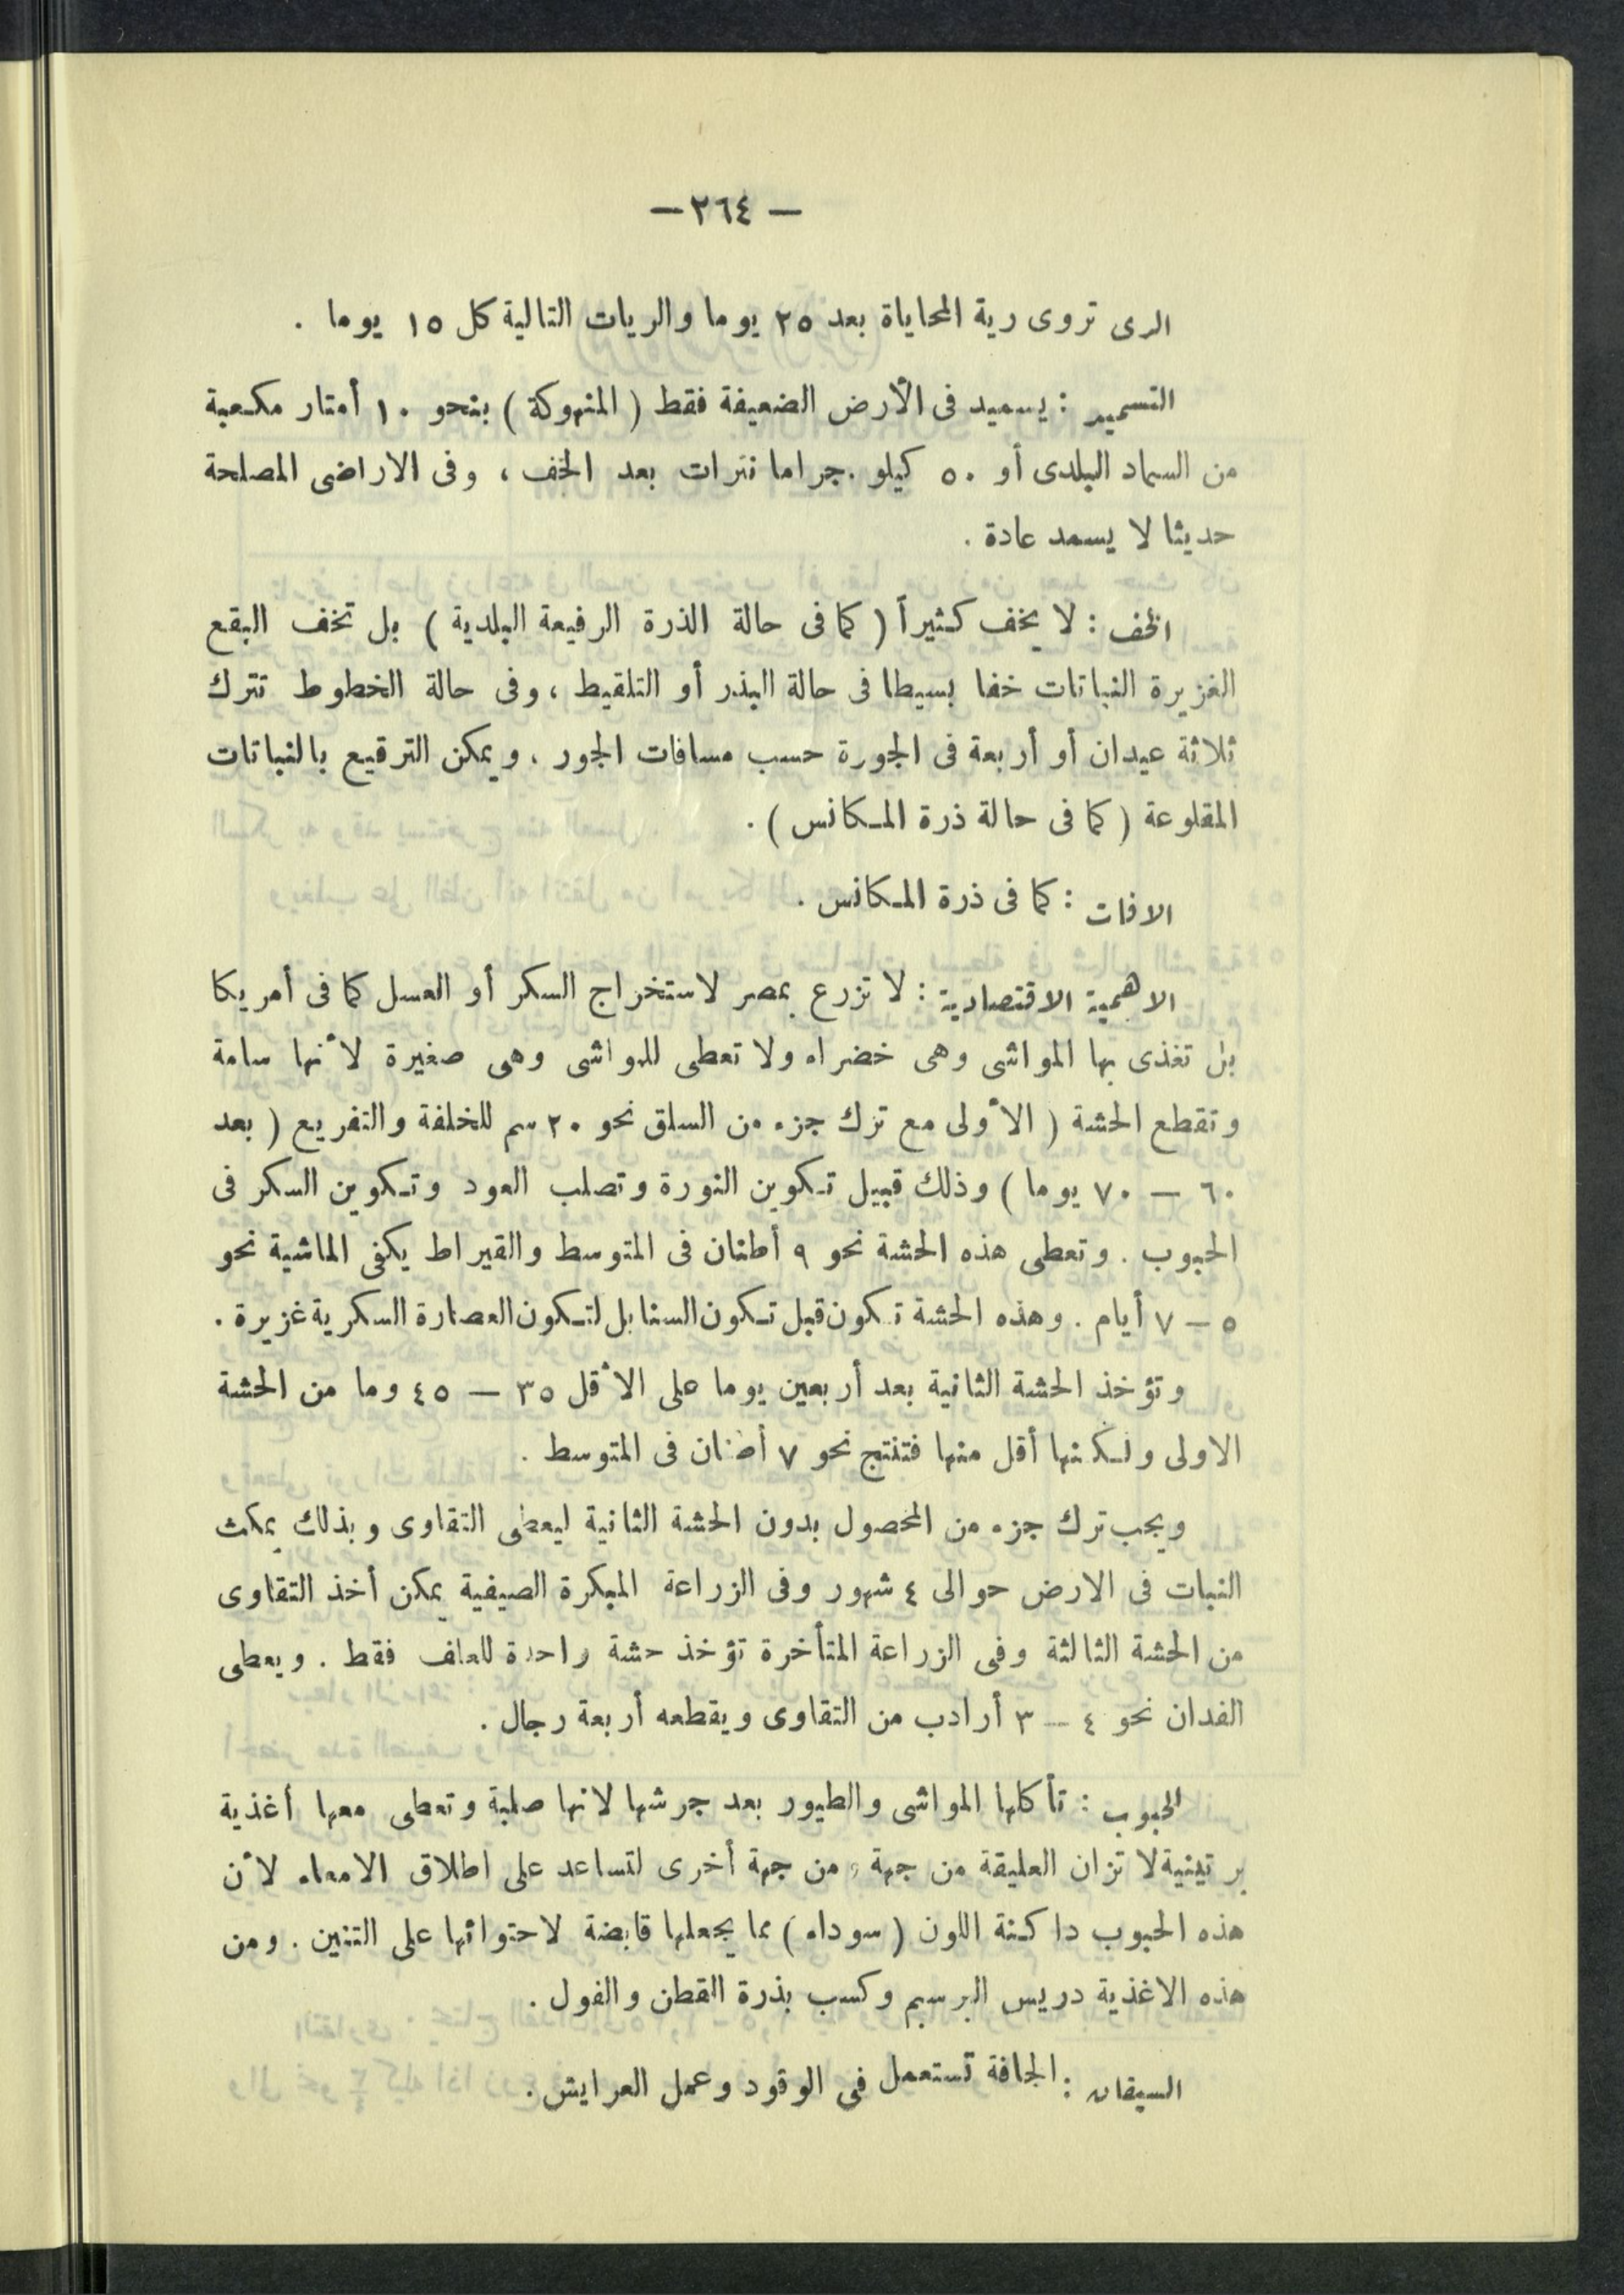 — ٢٦٤ —
الرى تروى رية المحاياة بعد ٢٥ يوما والريات التالية كل ١٥ يوما .
التسميد : يسميد فى الأرض الضعيفة فقط ( المنهوكة ) بنحو ١٠ أمتار مكعبة
من السماد البلدى أو ٥٠ كيلو جراما نترات بعد الخف ، وفى الاراضى المصلحة
حديثا لا يسمد عادة .
الخف : لا يخف كثيراً ( كما فى حالة الذرة الرفيعة البلدية ) بل تخف البقع
الغزيرة النباتات خفا بسيطا فى حالة البذر أو التلقيط ، وفى حالة الخطوط تترك
ثلاثة عيدان أو أربعة فى الجورة حسب مسافات الجور ، ويمكن الترقيع بالنباتات
المقلوعة ( كما فى حالة ذرة المكانس ) .
الافات : كما فى ذرة المكانس .
الاهمية الاقتصادية : لا تزرع بمصر لاستخراج السكر أو العسل كما فى أمريكا
بل تغذى بها المواشى وهى خضراء ولا تعطى للمواشى وهى صغيرة لأنها سامة
وتقطع الحشة ( الأولى مع ترك جزء من السلق نحو ٢٠ سم للخلفة والتفريع ( بعد
٦٠ — ٧٠ يوما ) وذلك قبيل تكوين النورة وتصلب العود وتكوين السكر فى
الحبوب . وتعطى هذه الحشة نحو ٩ أطنان فى المتوسط والقيراط يكفى الماشية نحو
٥ — ٧ أيام . وهذه الحشة تكون قبل تكون السنابل لتكون العصارة السكرية غزيرة .
وتؤخذ الحشة الثانية بعد أربعين يوما على الأقل ٣٥ — ٤٥ وما من الحشة
الاولى ولكنها أقل منها فتنتج نحو ٧ أطنان فى المتوسط .
ويجب ترك جزء من المحصول بدون الحشة الثانية ليعطى التقاوى وبذلك يمكث
النبات فى الارض حوالى ٤ شهور وفى الزراعة المبكرة الصيفية يمكن أخذ التقاوى
من الحشة الثالثة وفى الزراعة المتأخرة تؤخذ حشة واحدة للعلف فقط . ويعطى
الفدان نحو ٤ — ٣ أرادب من التقاوى ويقطعه أربعة رجال .
الحبوب : تأكلها المواشى والطيور بعد جرشها لانها صلبة وتعطى معها أغذية
برتينية لا تزان العليقة من جهة ومن جهة أخرى لتساعد على اطلاق الامعاء لأن
هذه الحبوب داكنة اللون ( سوداء ) مما يجعلها قابضة لاحتوائها على التنين . ومن
هذه الاغذية دريس البرسيم وكسب بذرة القطن والفول .
السيقان : الجافة تستعمل فى الوقود وعمل العرايش .